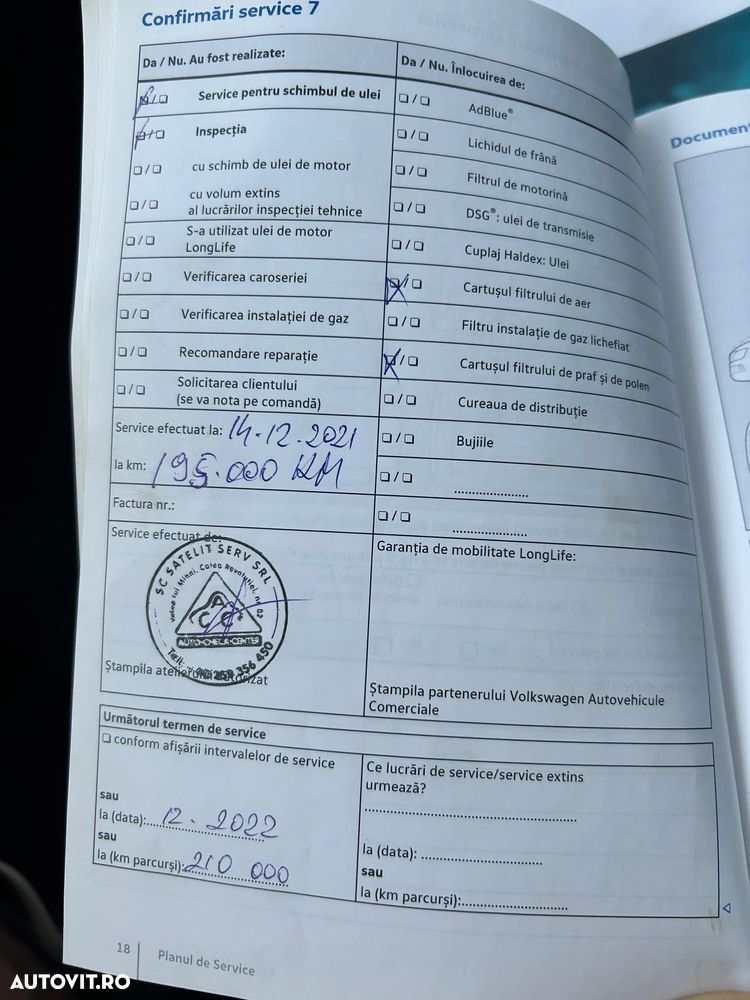 Confirmări service 7
Da / Nu. Au fost realizate:
Service pentru schimbul de ulei
Inspecția
cu schimb de ulei de motor
cu volum extins
al lucrărilor inspecției tehnice
S-a utilizat ulei de motor
LongLife
Verificarea caroseriei
Verificarea instalației de gaz
Recomandare reparație
Solicitarea clientului
(se va nota pe comandă)
Service efectuat la: 14.12.2021
la km: 195.000 KM
Factura nr.:
Service efectuat de:
SC SATELIT SERV SRL
AUTOCHECK-CENTER
Ștampila atelierului autorizat
Da / Nu. Înlocuirea de:
AdBlue®
Lichidul de frână
Filtrul de motorină
DSG®: ulei de transmisie
Cuplaj Haldex: Ulei
Cartușul filtrului de aer
Filtru instalație de gaz lichefiat
Cartușul filtrului de praf și de polen
Cureaua de distribuție
Bujiile
Garanția de mobilitate LongLife:
Ștampila partenerului Volkswagen Autovehicule
Comerciale
Următorul termen de service
conform afișării intervalelor de service
sau
la (data): 12.2022
sau
la (km parcurși): 210 000
Ce lucrări de service/service extins
urmează?
la (data):
sau
la (km parcurși):
18 Planul de Service
Document
AUTOVIT.RO